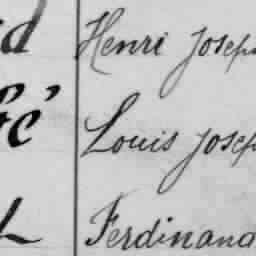 Henri Joseph
Louis Joseph
Ferdinand